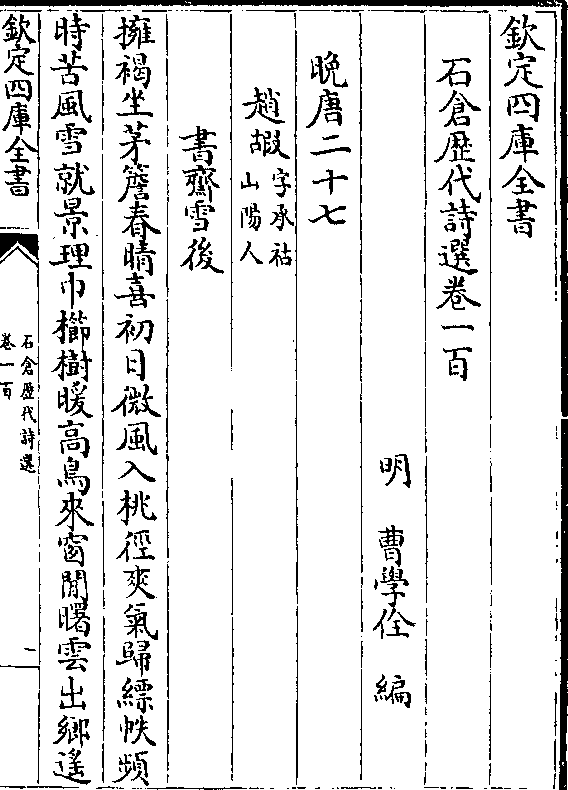 欽定四庫全書
石倉歴代詩選卷一百
明 曹學佺 編
晚唐二十七
趙嘏字承祜
山陽人
書齋雪後
擁褐坐茅簷春晴喜初日微風入桃徑爽氣歸縹帙頻
時苦風雪就景理巾櫛樹暖高鳥來窗閒曙雲出鄉遙
欽定四庫全書
石倉歴代詩選
卷一百
一